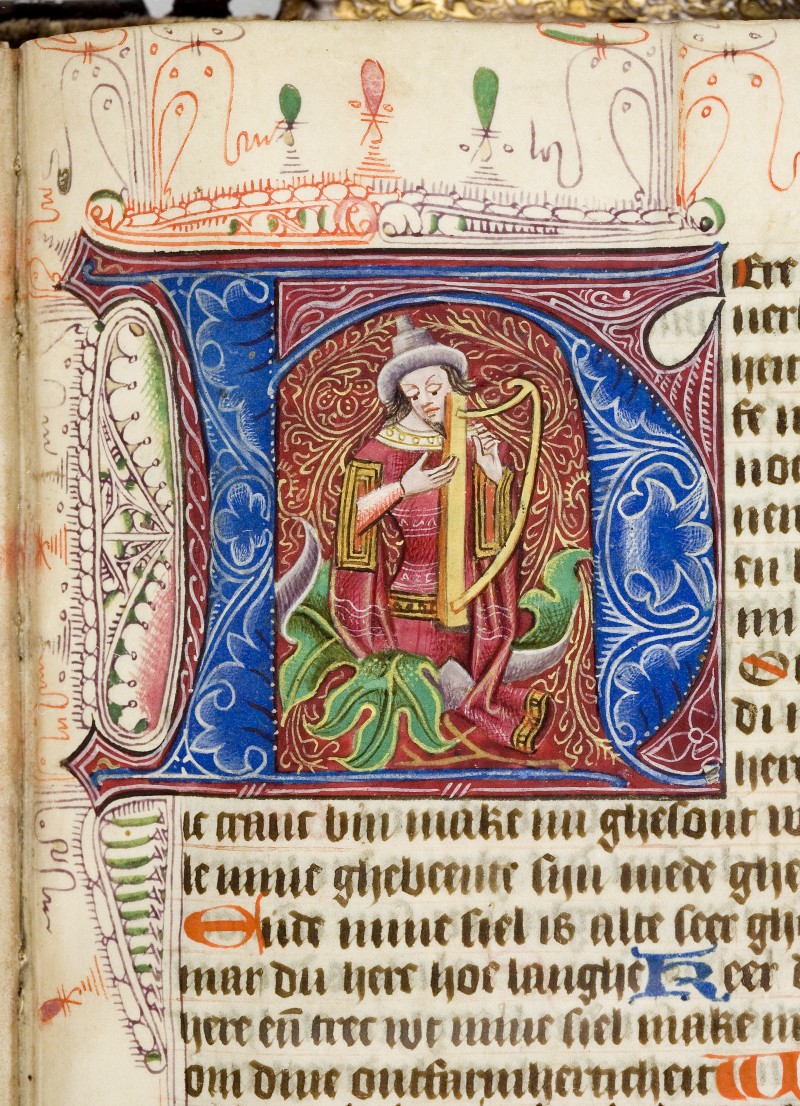 HEre
heit
here
ic cranc bin make mi ghesont w
le mine ghebeente sijn mede ghe
Ende mine siel is alte seer gh
mar du here hoe langhe Keer d
here en̄ trec wt mine siel make m
om dine ontfarmherticheit W